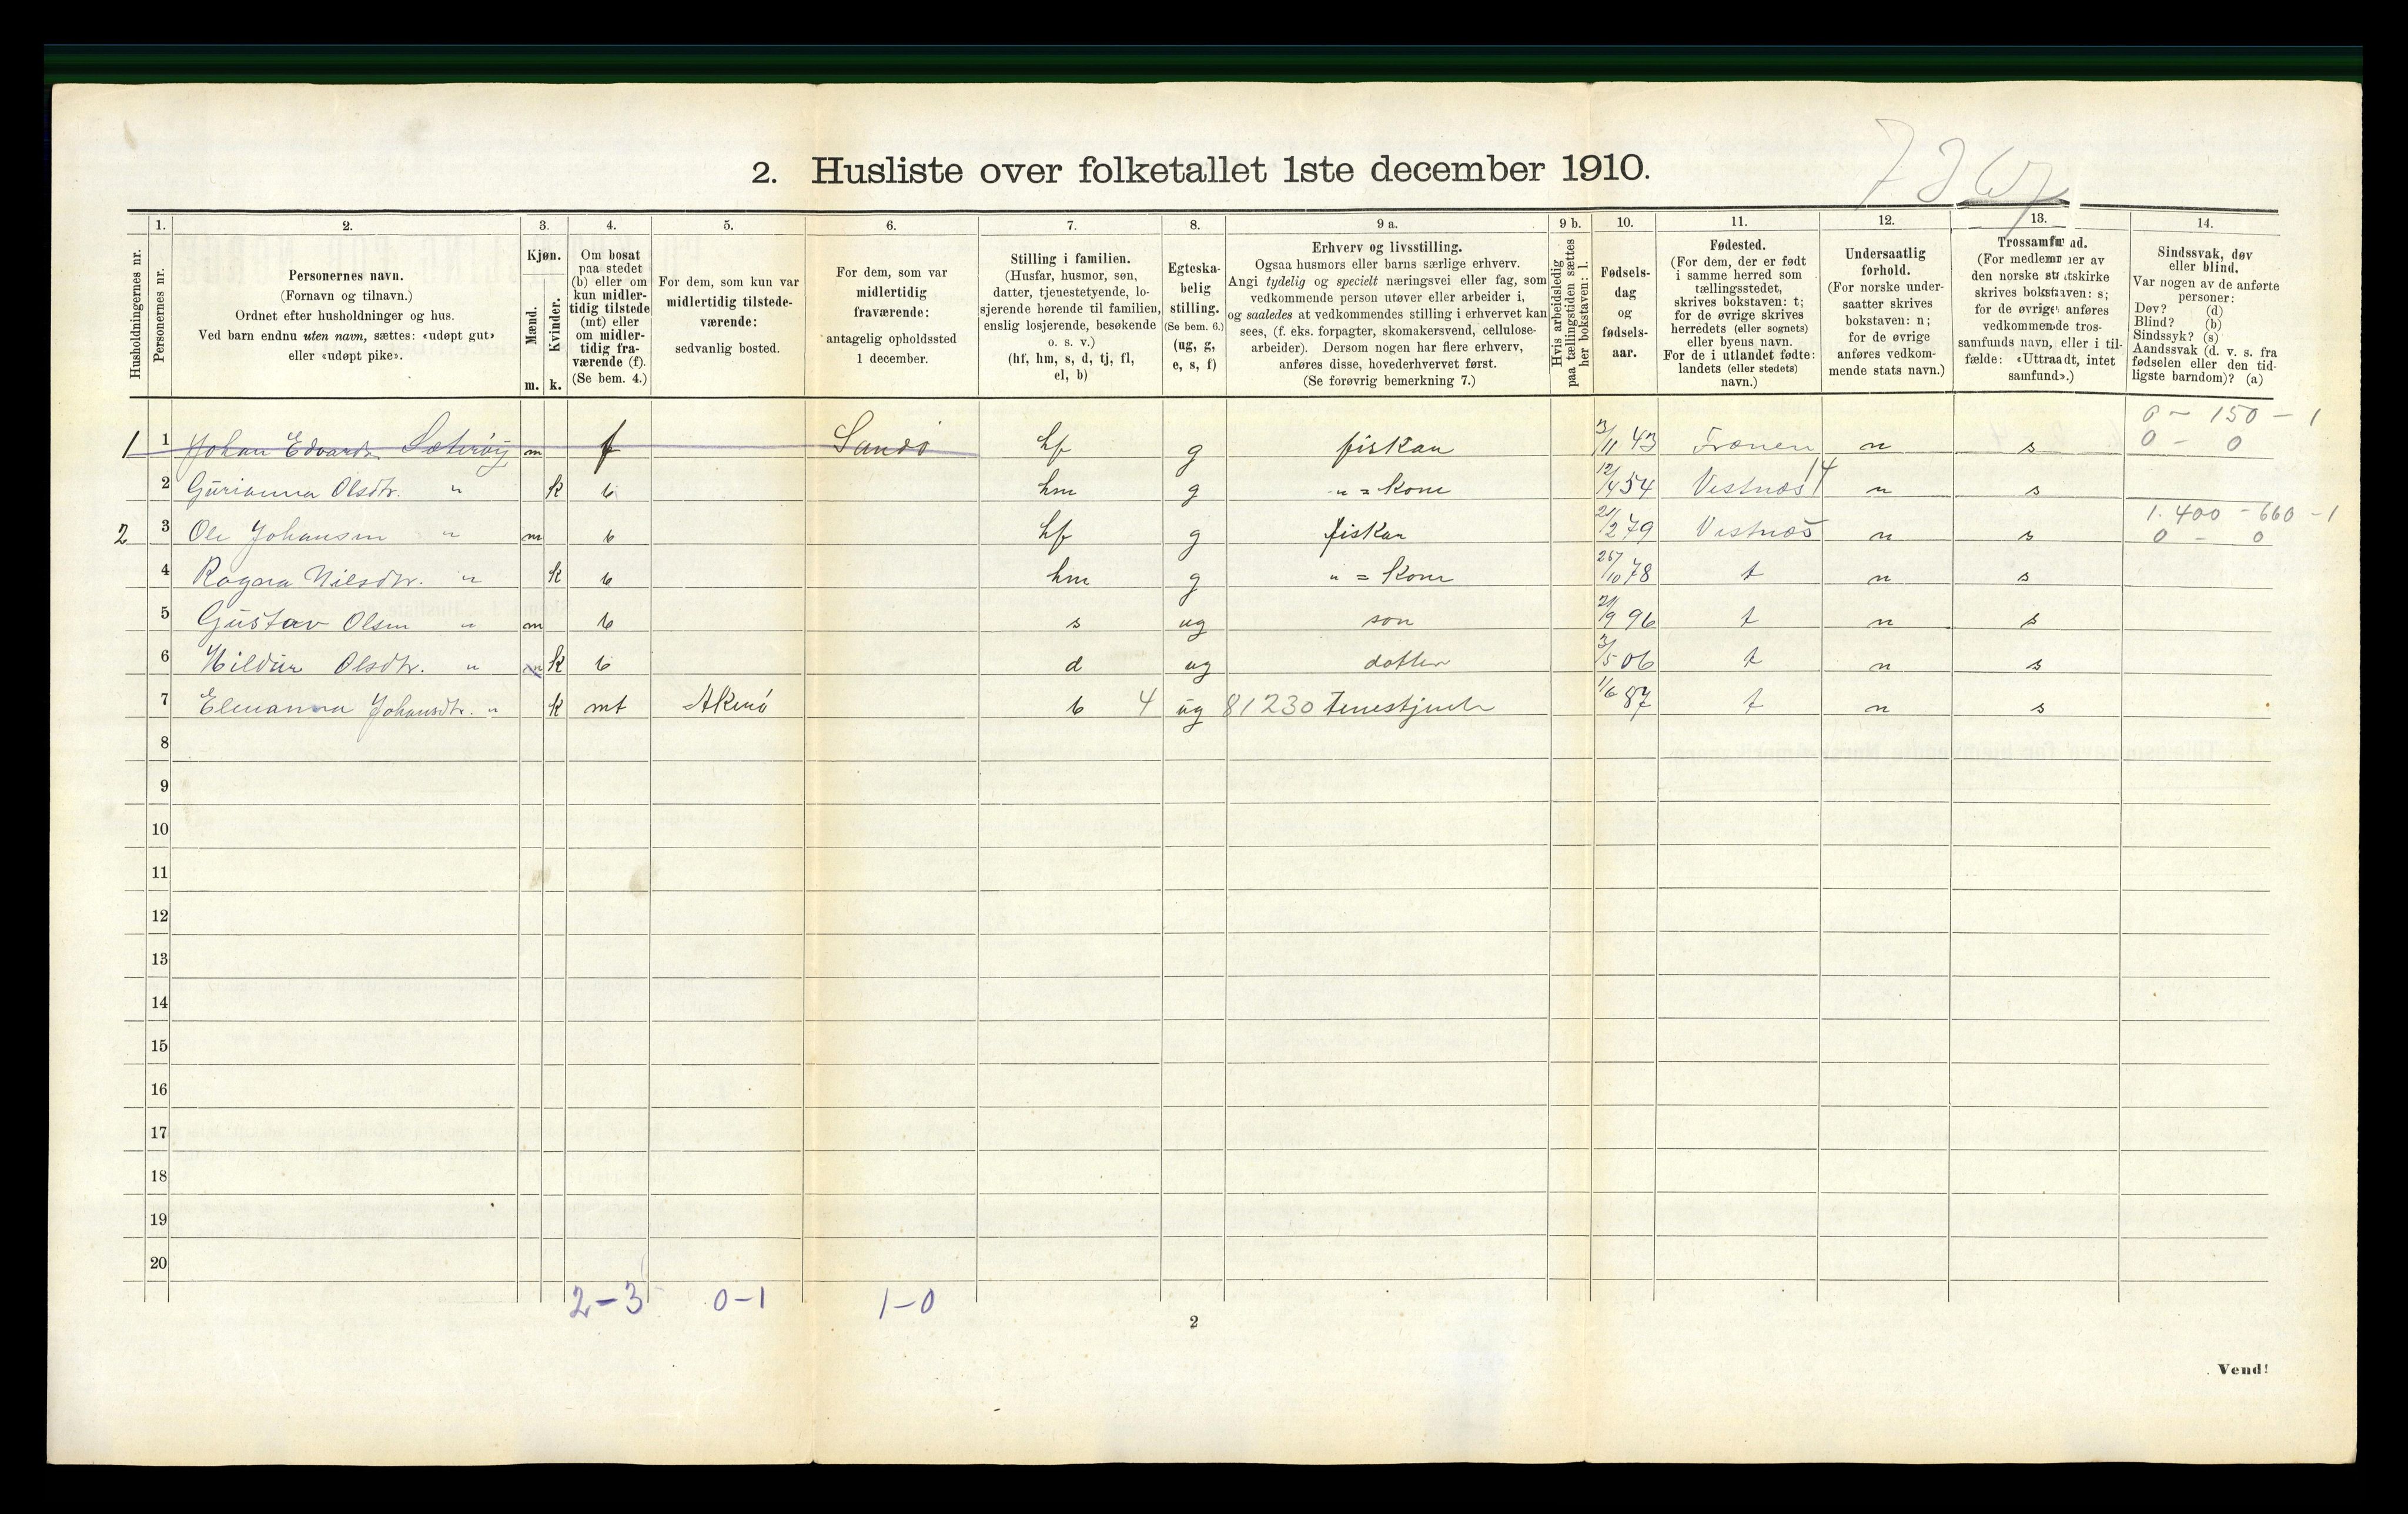 2. Husliste over folketallet 1ste december 1910.
1. 2. 3. 4. 5. 6. 7. 8. 9 a. 9 b. 10. 11. 12. 13. 14.
Husholdningernes nr.
Personernes nr.
Personernes navn.
(Fornavn og tilnavn.)
Ordnet efter husholdninger og hus.
Ved barn endnu uten navn, sættes: «udøpt gut»
eller «udøpt pike».
Kjøn.
Mænd.
Kvinder.
m. k.
Om bosat
paa stedet
(b) eller om
kun midler-
tidig tilstede
(mt) eller
om midler-
tidig fra-
værende (f).
(Se bem. 4.)
For dem, som kun var
midlertidig tilstede-
værende:
sedvanlig bosted.
For dem, som var
midlertidig
fraværende:
antagelig opholdssted
1 december.
Stilling i familien.
(Husfar, husmor, søn,
datter, tjenestetyende, lo-
sjerende hørende til familien,
enslig losjerende, besøkende
o. s. v.)
(hf, hm, s, d, tj, fl,
el, b)
Egteska-
belig
stilling.
(Se bem. 6.)
(ug, g,
e, s, f)
Erhverv og livsstilling.
Ogsaa husmors eller barns særlige erhverv.
Angi tydelig og specielt næringsvei eller fag, som
vedkommende person utøver eller arbeider i,
og saaledes at vedkommendes stilling i erhvervet kan
sees, (f. eks. forpagter, skomakersvend, cellulose-
arbeider). Dersom nogen har flere erhverv,
anføres disse, hovederhvervet først.
(Se forøvrig bemerkning 7.)
Hvis arbeidsledig
paa tællingstiden sættes
her bokstaven: l.
Fødsels-
dag
og
fødsels-
aar.
Fødested.
(For dem, der er født
i samme herred som
tællingsstedet,
skrives bokstaven: t;
for de øvrige skrives
herredets (eller sognets)
eller byens navn.
For de i utlandet fødte:
landets (eller stedets)
navn.)
Undersaatlig
forhold.
(For norske under-
saatter skrives
bokstaven: n;
for de øvrige
anføres vedkom-
mende stats navn.)
Trossamfund.
(For medlemmer av
den norske statskirke
skrives bokstaven: s;
for de øvrige anføres
vedkommende tros-
samfunds navn, eller i til-
fælde: «Uttraadt, intet
samfund».)
Sindssvak, døv
eller blind.
Var nogen av de anførte
personer:
Døv? (d)
Blind? (b)
Sindssyk? (s)
Aandssvak (d. v. s. fra
fødselen eller den tid-
ligste barndom)? (a)
0 - 150 - 1
1 1 Johan Edvards. Sæterøy m f Sandø hf g fiskar 3/11 43 Frænen n s 0 - 0
2 Gurianna Olsdtr. " k b hm g " = kone 12/4 54 Vestnes 14 n s
1.400 - 660 - 1
2 3 Ole Johansen " m b hf g fiskar 21/2 79 Vestnes n s 0 - 0
4 Ragna Nilsdtr. " k b hm g " = kone 26/10 78 t n s
5 Gustav Olsen " m b s ug son 21/9 96 t n s
6 Hildur Olsdtr. " k b d ug dotter 3/5 06 t n s
7 Elenanna Johansdtr. " k mt Akerø b 4 ug 81230 tenestjente 1/6 87 t n s
8
9
10
11
12
13
14
15
16
17
18
19
20
2-3 0-1 1-0
2
Vend!